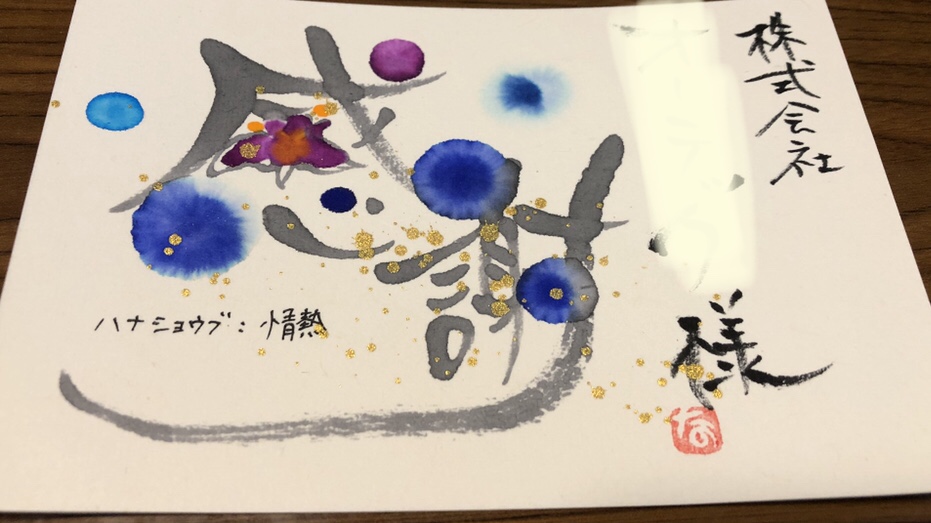 株式会社
様
感謝
ハナショウブ：情熱